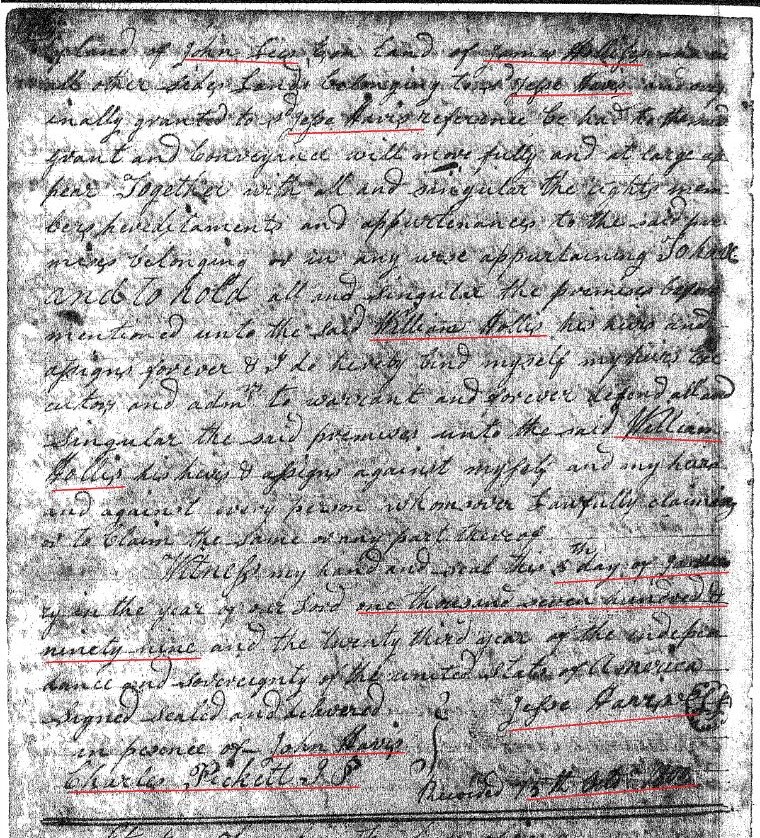 upland of John Lees & on land of James
all other sides Lands belonging to sd. Jesse Havis and orig
inally granted to sd Jesse Havis reference be had to the said
grant and Conveyance will more fully and at large ap
pear Together with all and singular the rights mem
bers hereditaments and appurtenances to the said pre
mises belonging or in any wise appurtaining To have
and to hold all and singular the premises before
mentioned unto the said William Hollis his heirs and
assigns forever & I do hereby bind myself my heirs Exe
cutors and admrs to warrant and forever defend all and
Singular the said premises unto the said William
Hollis his heirs & assigns against myself and my heirs
and against every person whomsover Lawfully claiming
or to Claim the same or any part thereof
Witness my hand and seal this 5th day of Janua
ry in the year of our Lord one thousand seven hundred &
ninety nine and the twenty third year of the indepen
dance and sovereignty of the united states of America
Signed sealed and delivered
in presence of John Havis
Jesse Havis
Charles Pickett J P
Recorded 15th 1800